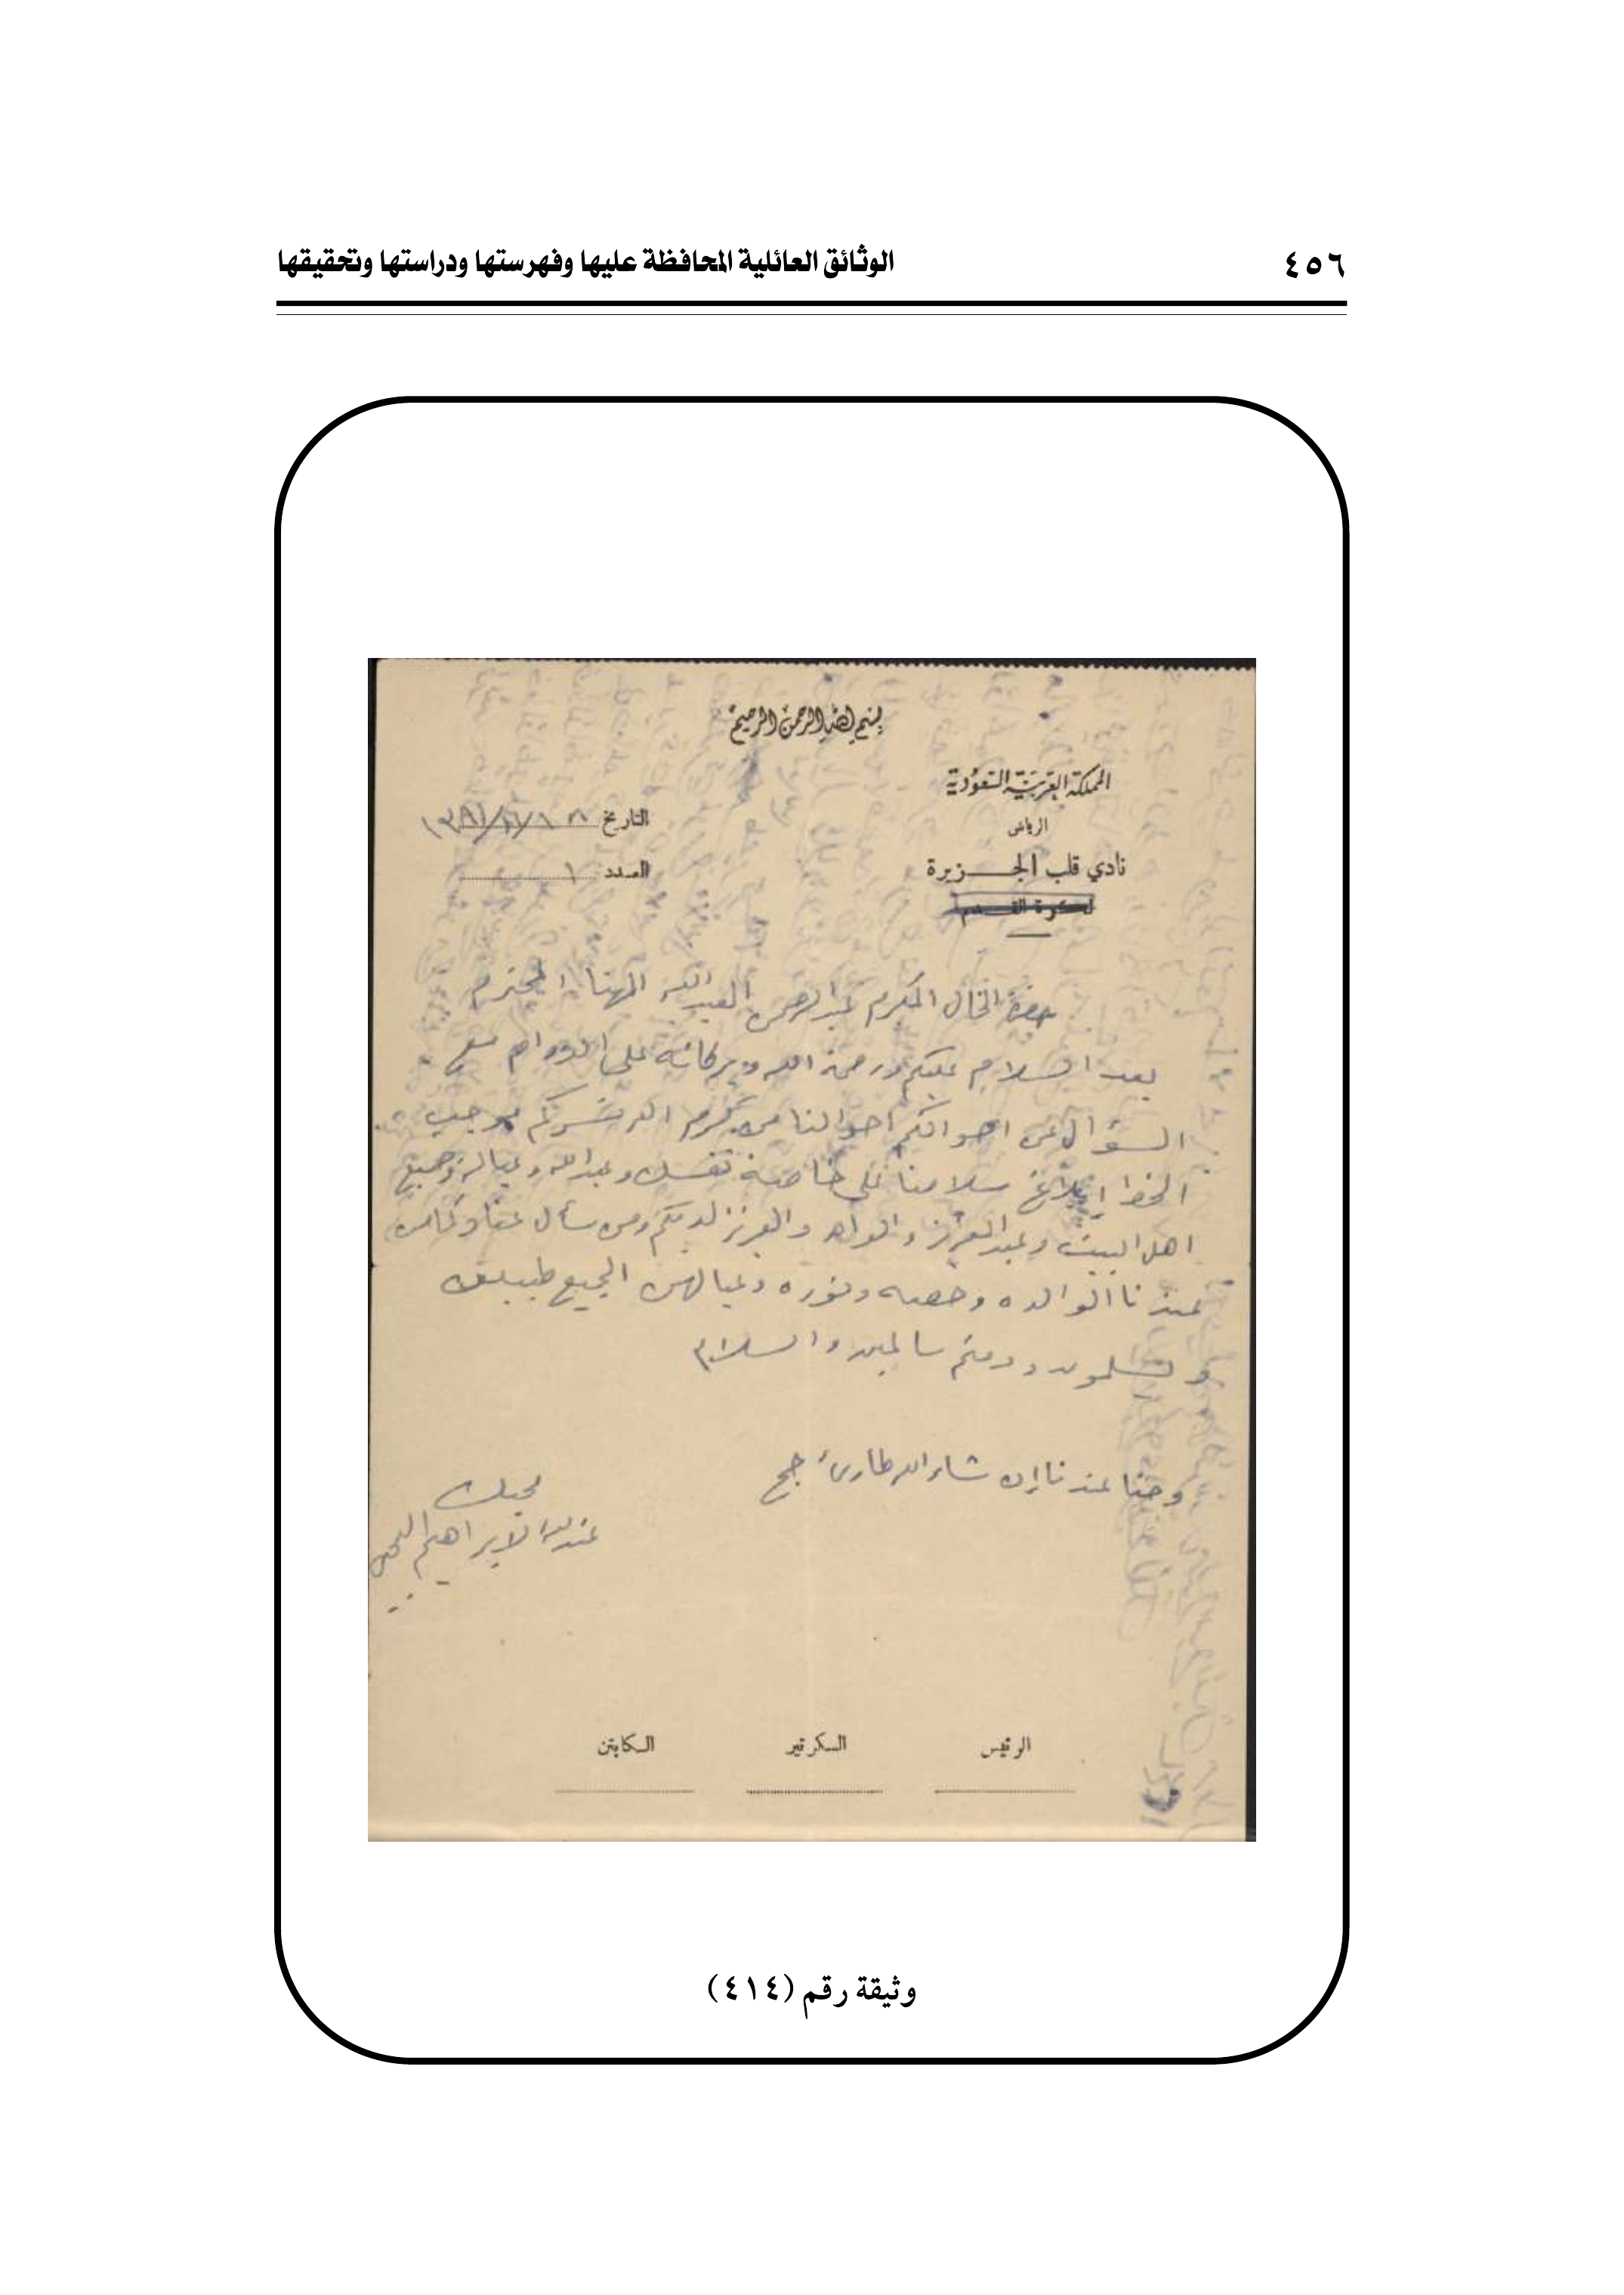 ٤٥٦
الوثائق العائلية المحافظة عليها وفهرستها ودراستها وتحقيقها
بسم الله الرحمن الرحيم
المملكة العربية السعودية
الرياض
نادي قلب الجـــزيرة
لكرة القدم
التاريخ
العدد ١
حضرة الخال المكرم عبدالرحمن العبدالله المهنا المحترم
بعد السلام عليكم ورحمة الله وبركاته على الدوام مع
السؤال عن احوالكم احوالنا من كرم الله تسركم موجب
الخط إبلاغ سلامنا على خاصة نفسك وعبدالله وعياله وجميع
اهل البيت وعبدالعزيز والعزيز لديكم ومن سأل عنا وكما من
عندنا الوالده وحصه ونوره وعيالهن الجميع طيبين
ويسلمون ودمتم سالمين والسلام
وحنا عندنا إن شاء الله طارئ حج
محبك
عبدالله الابراهيم
الرئيس
السكرتير
الكابتن
وثيقة رقم (٤١٤)